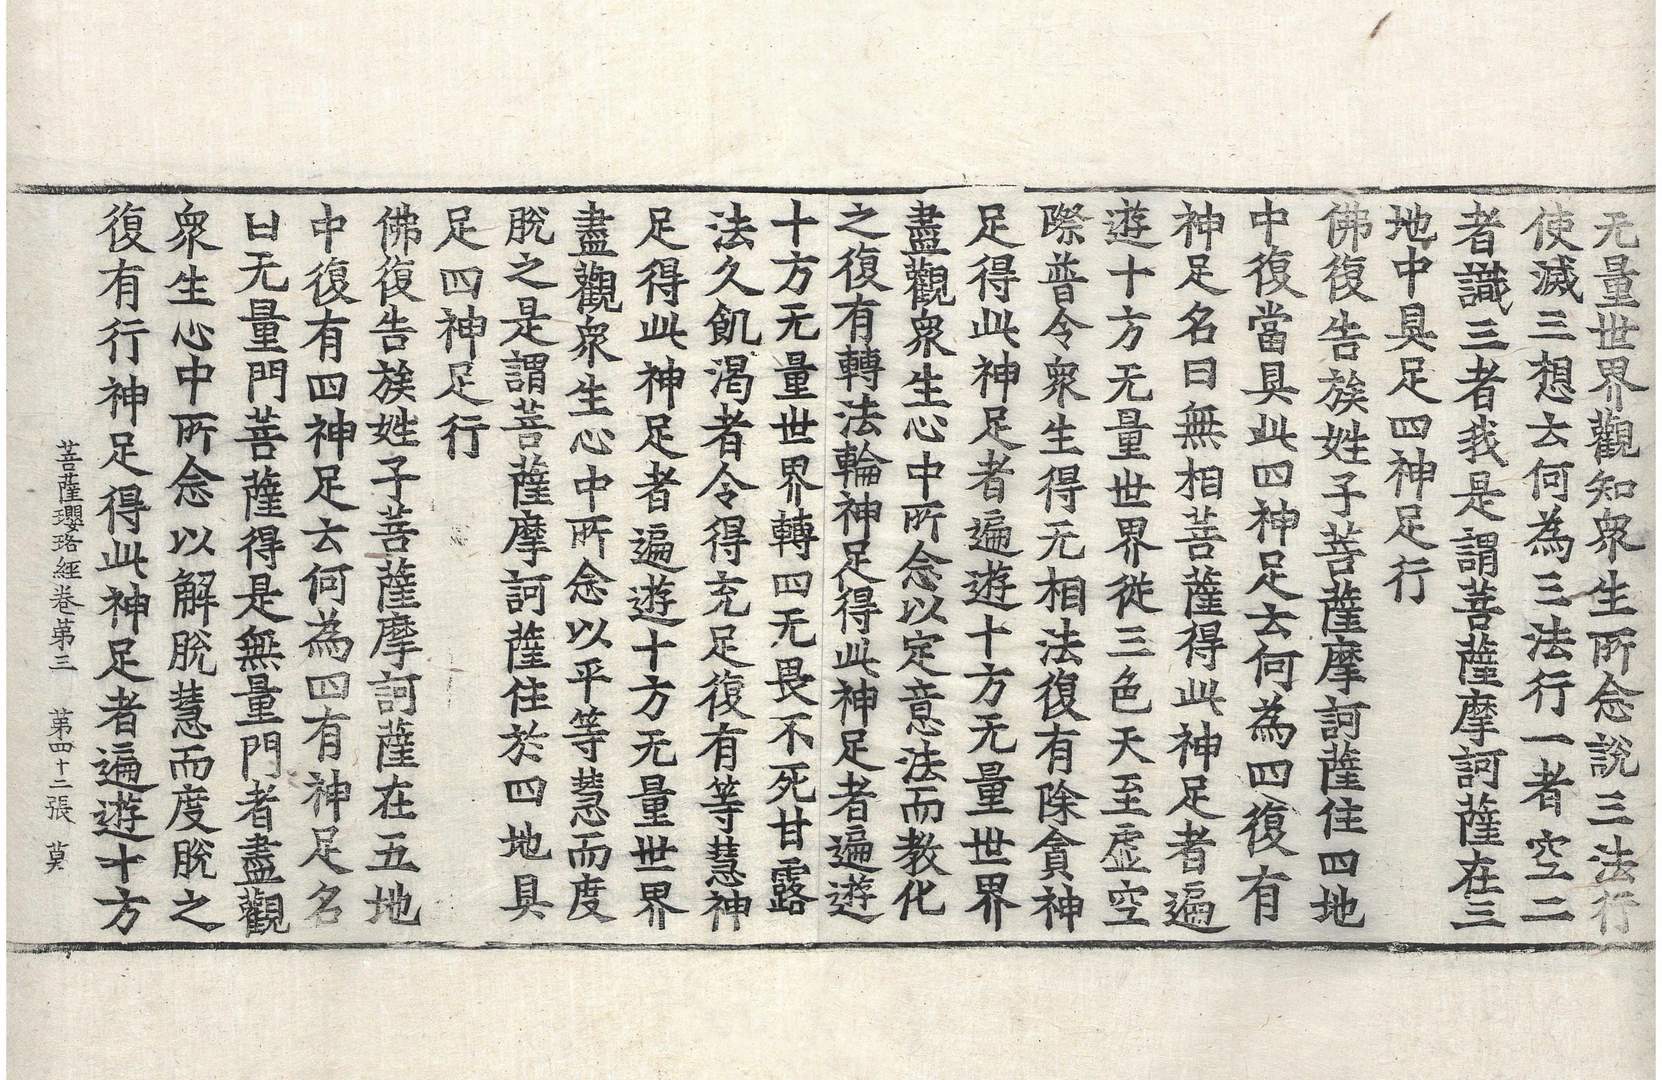 无量世界觀知衆生所念說三法行
使滅三想去何為三法行一者空二
者識三者我是謂菩薩摩訶薩在三
地中具足四神足行
佛復告族姓子菩薩摩訶薩住四地
中復當具此四神足去何為四復有
神足名曰無相菩薩得此神足者遍
遊十方无量世界從三色天至虛空
際普令衆生得无相法復有除貪神
足得此神足者遍遊十方无量世界
盡觀衆生心中所念以定意法而教化
之復有轉法輪神足得此神足者遍遊
十方无量世界轉四无畏不死甘露
法久飢渴者令得充足復有等慧神
足得此神足者遍遊十方无量世界
盡觀衆生心中所念以平等慧而度
脫之是謂菩薩摩訶薩住於四地具
足四神足行
佛復告族姓子菩薩摩訶薩在五地
中復有四神足去何為四有神足名
曰无量門菩薩得是無量門者盡觀
衆生心中所念以解脫慧而度脫之
復有行神足得此神足者遍遊十方
菩薩瓔珞經卷第三 第四十二張 莫